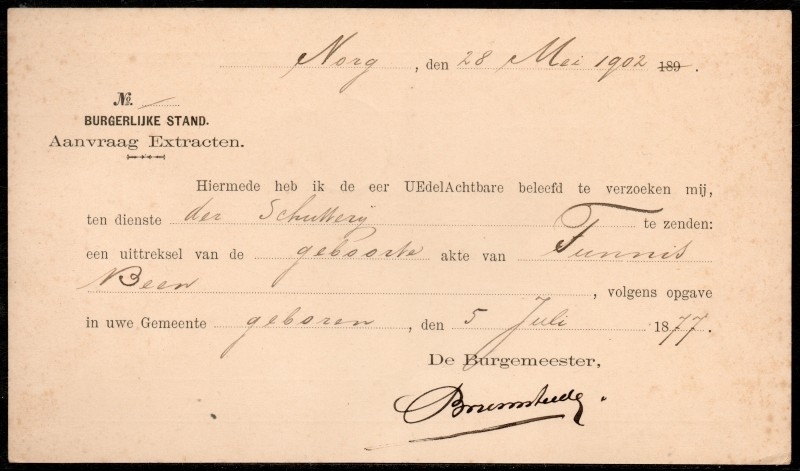 Norg, den 28 Mei 1902 189 .
№. /
BURGERLIJKE STAND.
Aanvraag Extracten.
Hiermede heb ik de eer UEdelAchtbare beleefd te verzoeken mij,
ten dienste der Schutterij te zenden:
een uittreksel van de geboorte akte van Tunnis
Been , volgens opgave
in uwe Gemeente geboren , den 5 Juli 1877.
De Burgemeester,